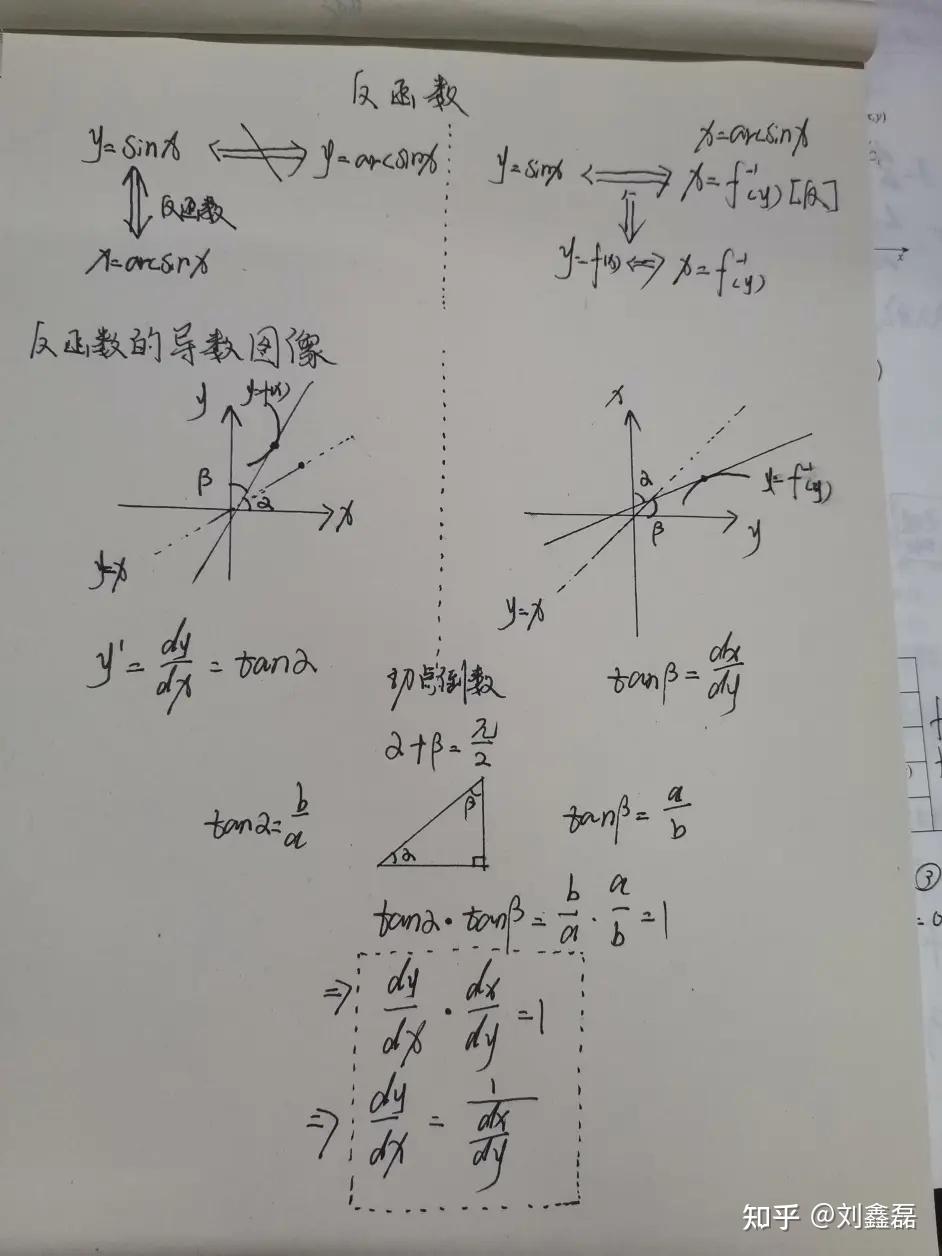 反函数
y=sinx ⇔ y=arcsinx
反函数
x=arcsinx
x=arcsinx
y=sinx ⇔ x=f⁻¹(y) [反]
⇓
y=f(x) ⇔ x=f⁻¹(y)
反函数的导数图像
y
y=f(x)
β
α
x
y=x
x
α
y=f⁻¹(y)
β
y
y=x
y'=dy/dx=tanα
切点倒数
tanβ=dx/dy
α+β=π/2
tanα=b/a
β
α
tanβ=a/b
tanα·tanβ=b/a·a/b=1
⇒ dy/dx·dx/dy=1
⇒ dy/dx=1/(dx/dy)
③
知乎 @刘鑫磊